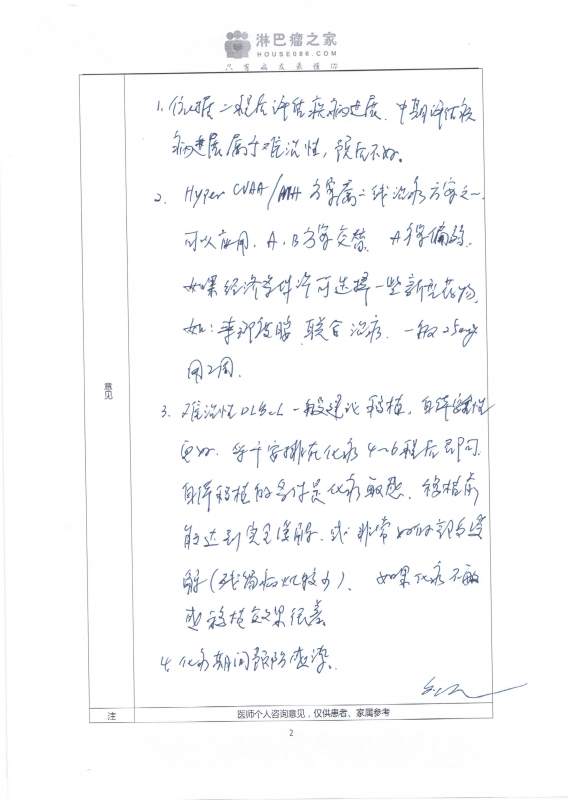 淋巴瘤之家
HOUSE086.COM
只有病友最懂你
意见
1. 依据二程后评估疾病进展、中期评估疾
病进展属于难治性，预后不好。
2. Hyper CVAD/MA 方案属二线治疗方案之一
可以应用、A、B方案交替、A方案偏弱
如果经济条件许可选择一些新型药物
如：来那度胺 联合治疗、一般25mg
用2周
3. 难治性DLBCL 一般建议移植，自体
更好、安排在化疗4~6程后即可
自体移植的条件是化疗敏感、移植前
能达到完全缓解、或非常好的部分缓
解（残留病灶较少）、如果化疗不敏
感移植效果很差
4. 化疗期间预防感染。
注
医师个人咨询意见，仅供患者、家属参考
2